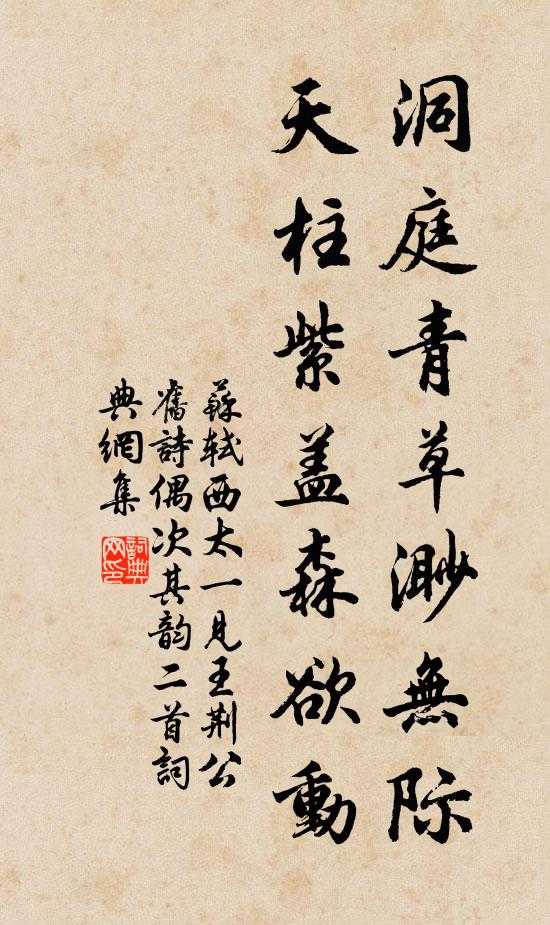 洞庭青草渺無际
天柱紫盖森欲動
蘇轼西太一見王荆公
舊詩偶次其韵二首詞
典網集
詞典
网印